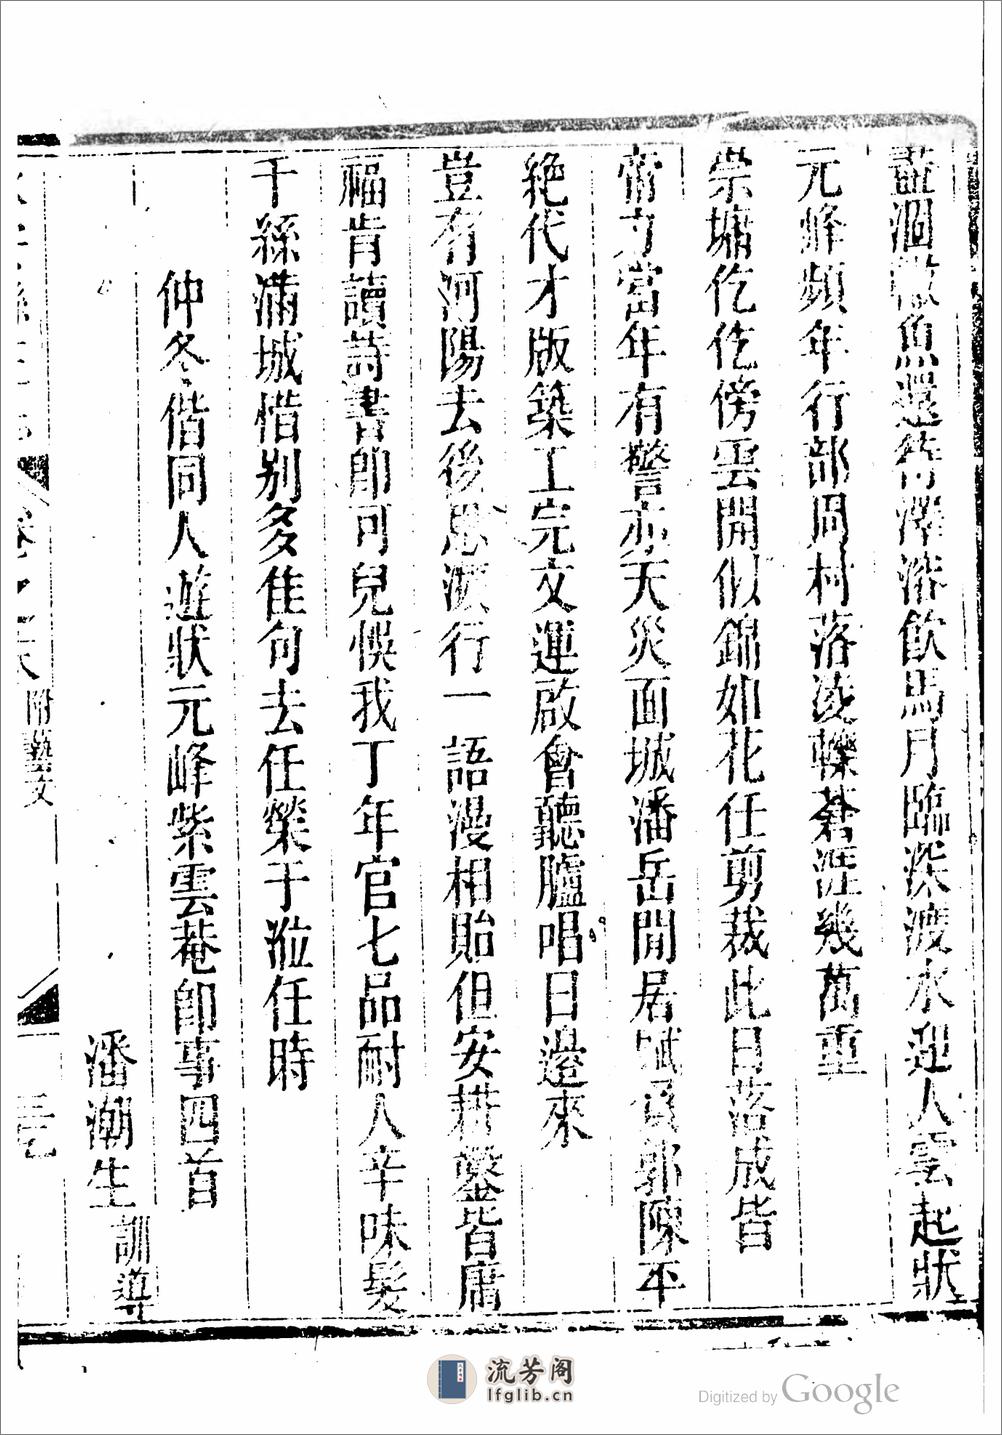 藍涸漁魚還舊澤漭飲馬月臨深渡水迎人雲起狀
元峰頻年行部周村落凌轢蒼涯幾萬重
崇墉仡仡傍雲開似錦如花任剪裁此日落成皆
膂力當年有警亦天災面城潘岳閒居賦郭陳平
絶代才版築工完文運啟會聽臚唱日邊來
豈有河陽去後思涖行一語漫相貽但安耕鑿皆庸
福肯讀詩書卽可兒悞我丁年官七品耐人辛味髮
千絲滿城惜别多佳句去任榮于涖任時
仲冬偕同人遊狀元峰紫雲菴卽事四首
潘潮生訓導
附藝文
流芳阁
lfglib.cn
Digitized by Google